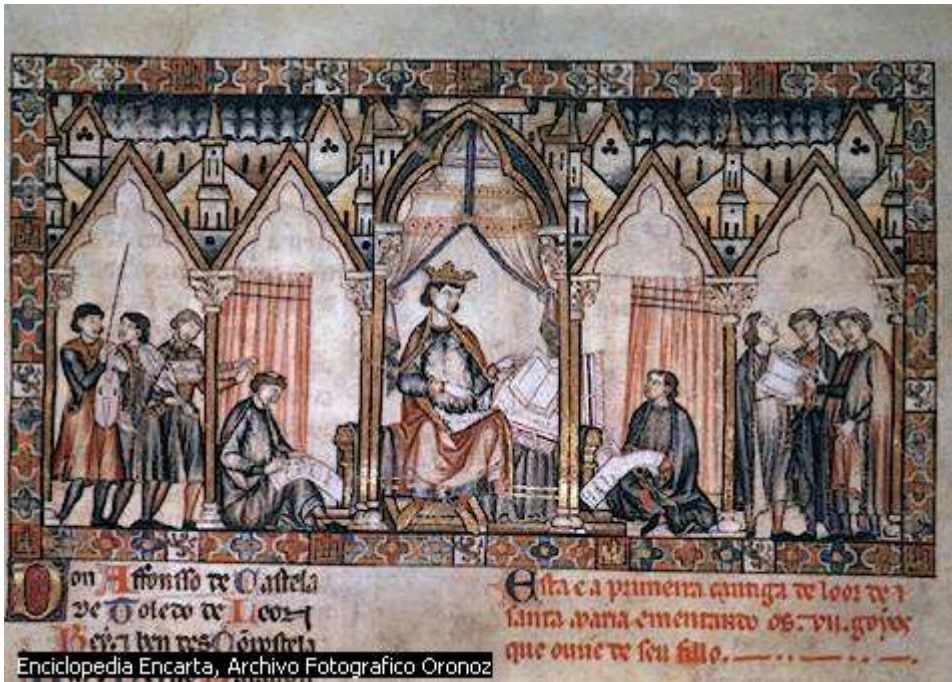 Don Affonsso de Castela
de Toledo de Leon
Rey
Esta e a primeira cantiga de loor de
santa maria ementando os .vii. goyos
que ouue de seu fillo.
Enciclopedia Encarta, Archivo Fotografico Oronoz